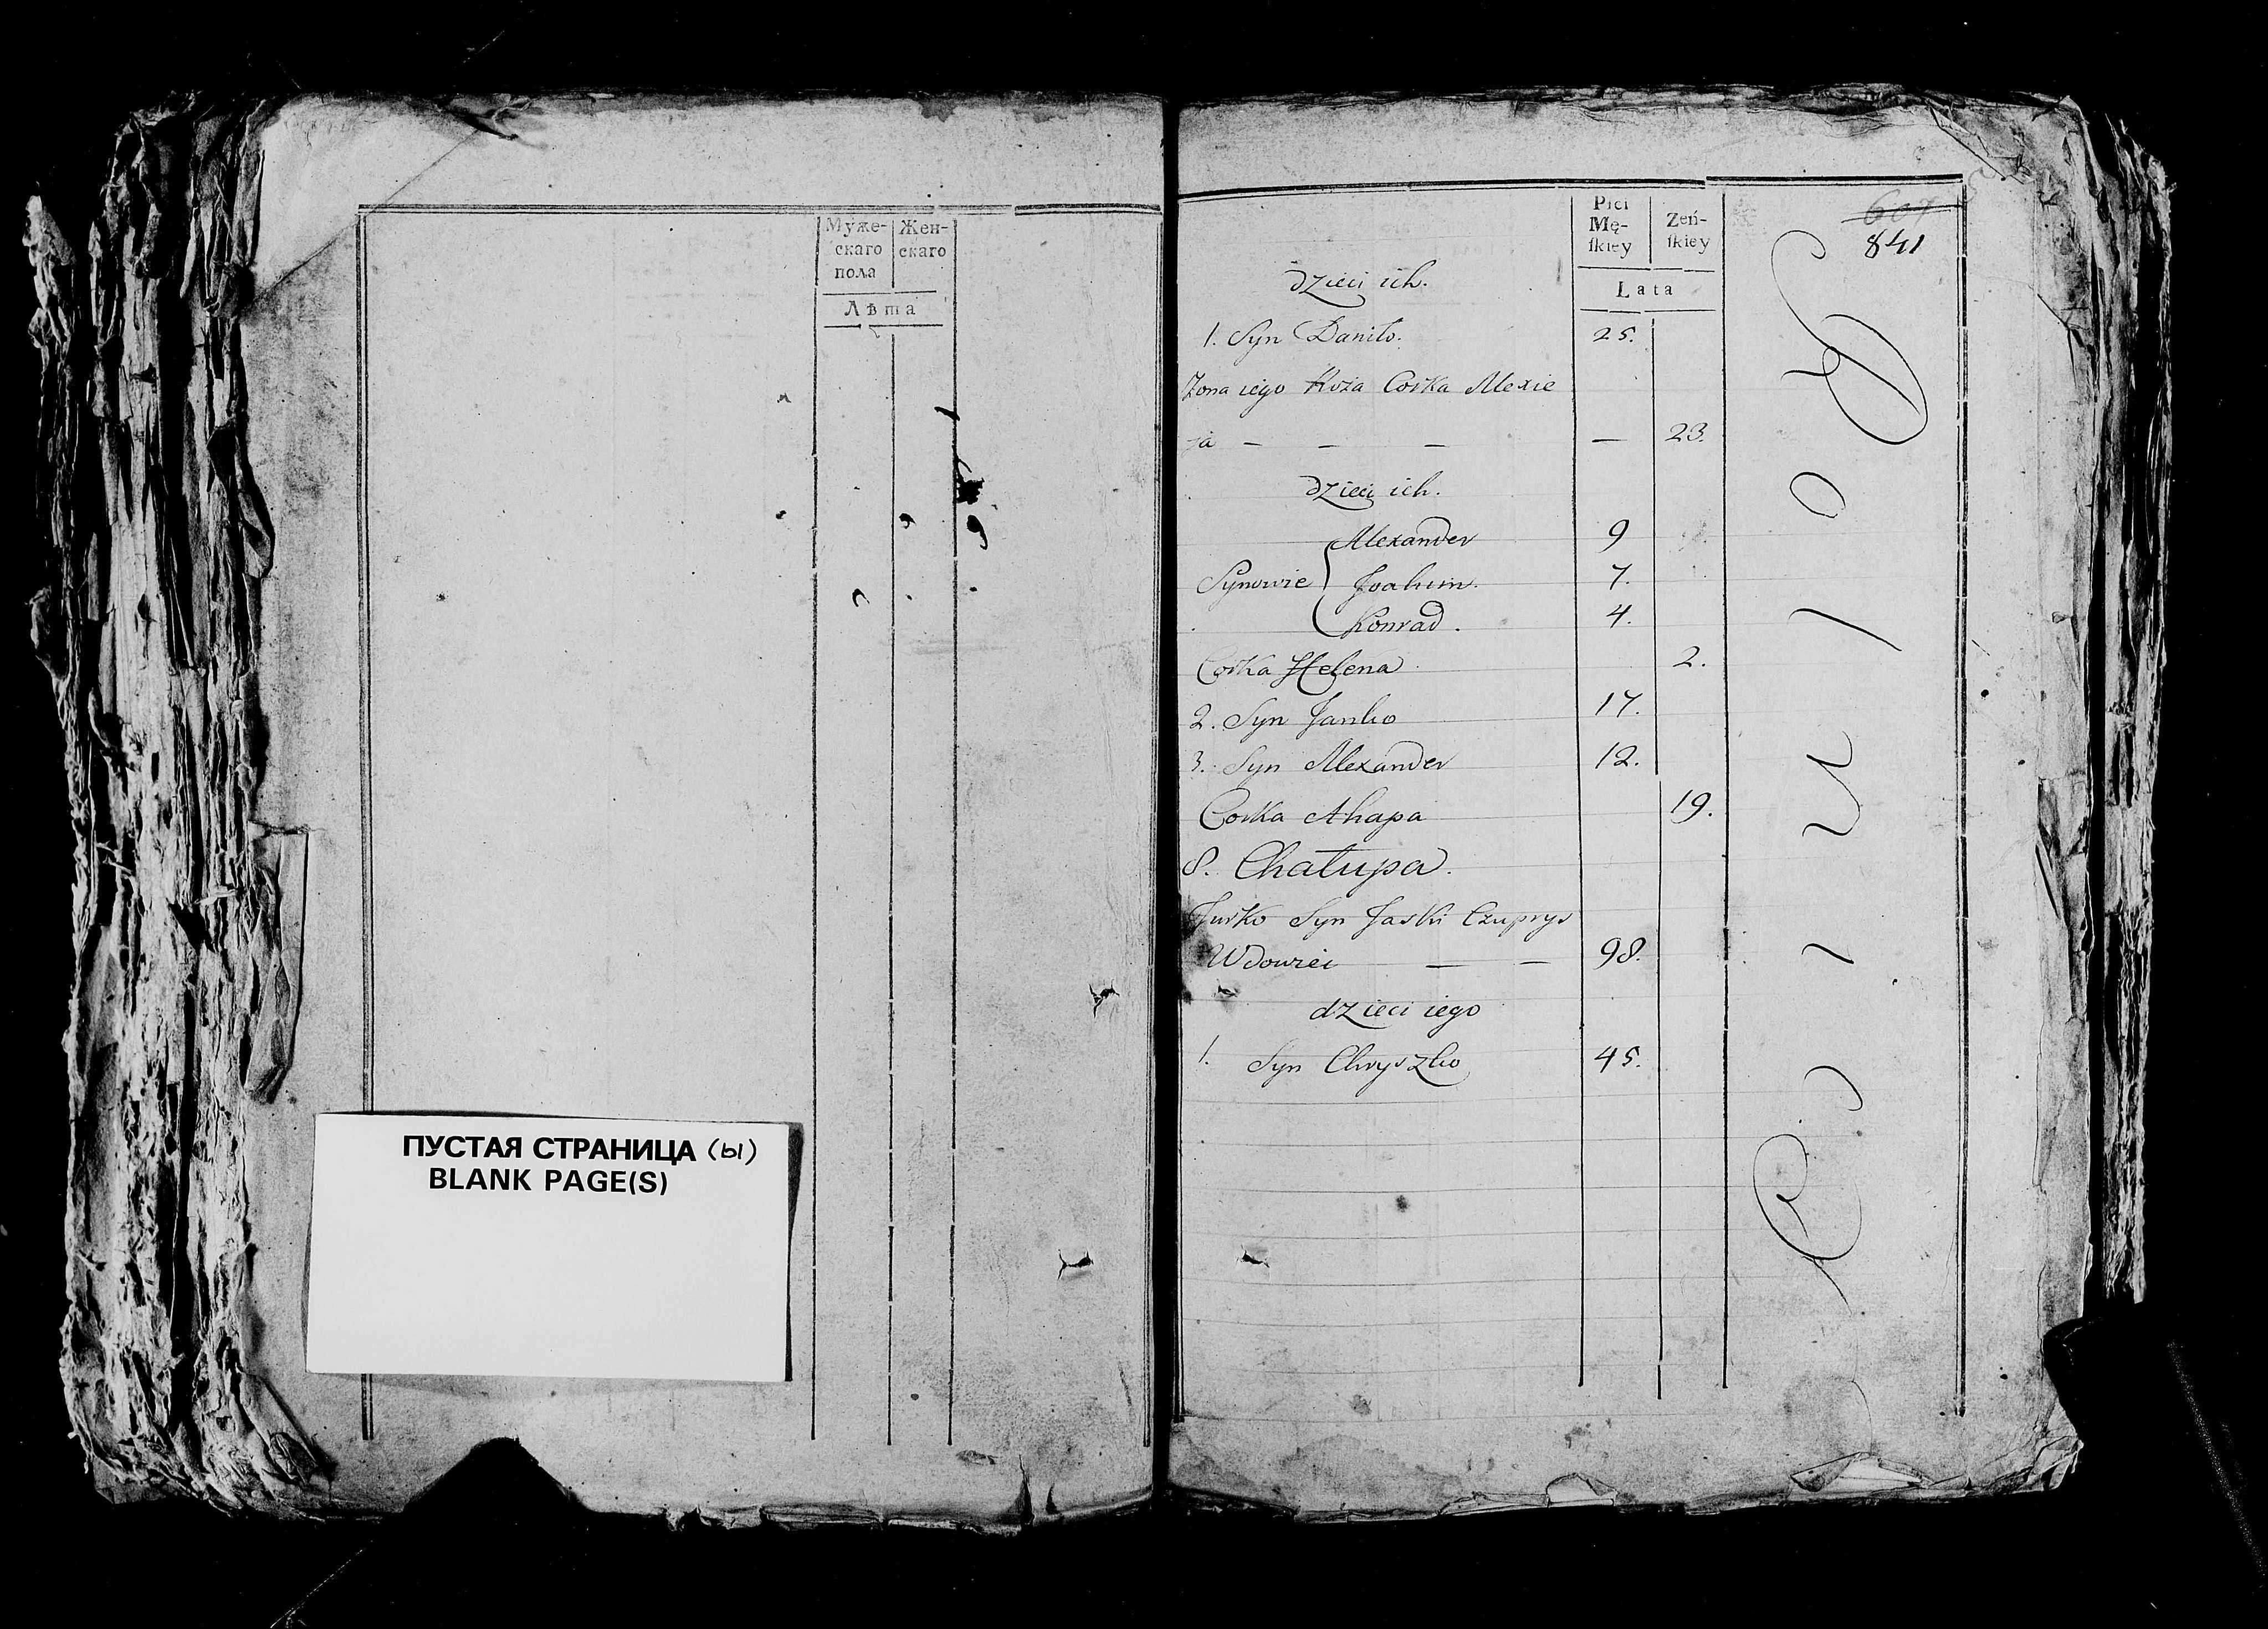 Муже-
скаго
пола
Жен-
скаго
Лѣта
ПУСТАЯ СТРАНИЦА (ы)
BLANK PAGE(S)
Płci
Mę-
ſkiey
Żeń-
ſkiey
Lata
607
841
dzieci ich.
1. Syn Daniło. 25.
Zona iego Roża Corka Alexie
ja — — — — 23.
dzieci ich.
Alexander 9
Synowie Joahim. 7.
Konrad. 4.
Corka Helena 2.
2. Syn Janko 17.
3. Syn Alexander 12.
Corka Ahapa 19.
8. Chałupa.
Jurko Syn Jaśki Czuprys
Wdowiec — — 98.
dzieci iego
1. Syn Chryszko 45.